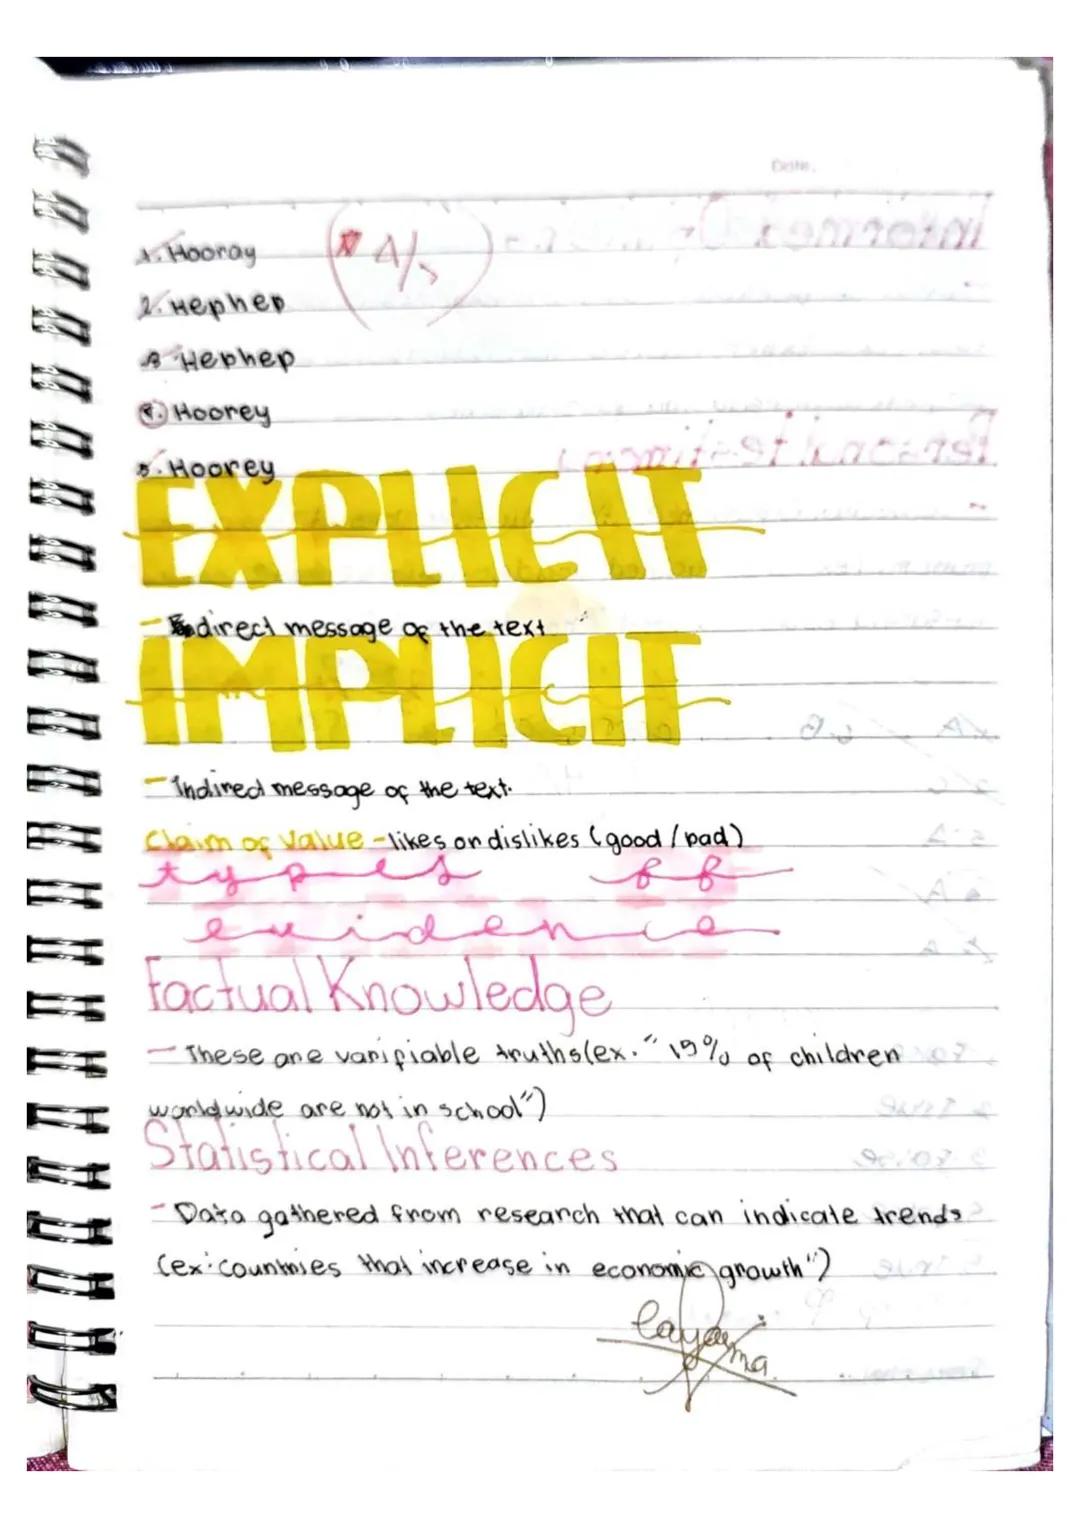 Date.
1. Hooray
4/5
2. Hephep
3 Hephep
4. Hoorey
5. Hoorey
EXPLICIT
- direct message of the text
IMPLICIT
- Indirect message of the text.
Claim of Value - likes or dislikes (good / bad)
types of
evidence
Factual Knowledge
- These are varifiable truths (ex. " 19% of children
worldwide are not in school")
Statistical Inferences
- Data gathered from research that can indicate trends
(ex: countries that increase in economic growth")